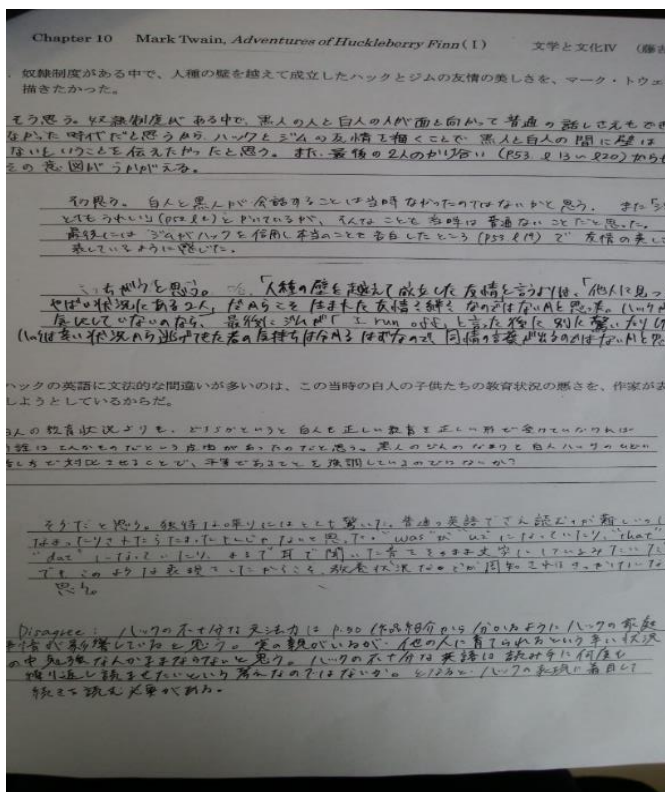 Chapter 10 Mark Twain, Adventures of Huckleberry Finn (I) 文学と文化IV (藤吉
. 奴隷制度がある中で、人種の壁を越えて成立したハックとジムの友情の美しさを、マーク・トウェ
描きたかった。
そう思う。奴隷制度がある中で、黒人の人と白人の人が面と向かって普通の話しさえもでき
なかった時代だと思うから、ハックとジムの友情を描くことで、黒人と白人の間に壁は
ないということを伝えたかったと思う。また、最後の2人のかけ合い (P53 l13〜l20) からも
その意図がうかがえる。
そう思う。白人と黒人が会話することは当時なかったのではないかと思う。また
とてもうれしい (P52 と いているが、そんなことも当時は普通ないことだと思った。
最後にはジムがハックを信用し本当のことを告白したところ (P53 l19) で友情の美し
表しているように感じた。
ちがうと思う。「人種の壁を越えて成立した友情と言うよりは、「他人に見つ
やばい状況にある2人」だからこそ生まれた友情・絆 なのではないかと思った。ハックが
気にしていないのなら、最後にジムが「I run off」と言った後に別に驚いたりし
状況から逃げてきた者の気持ちは分かるはずなので、同情の言葉が出るのではないかと思
ハックの英語に文法的な間違いが多いのは、この当時の白人の子供たちの教育状況の悪さを、作家が表
しようとしているからだ。
白人の教育状況よりも、どちらかというと白人も正しい教育を正しい形で受けていなければ
こんなものだという皮肉があったのだと思う。黒人のジムのなまりと白人ハックのひどい
話し方で対比させることで、平等であることを強調しているのではないか?
そうだと思う。独特な なまりにはとても驚いた。普通の英語でさえ読むのが難しいのに
なまったりされたらたまったもんじゃないと思った。"was"が"uz"になっていたり、"that"
"dat"になっていたり、まるで耳で聞いた音をそのまま文字にしているみたいだ
でもこのような表現 したからこそ、教育状況などが周知されるきっかけにな
思う。
Disagree : ハックの不十分な文法力は p.50 作品紹介から分かるようにハックの家庭
事情が影響していると思う。実の親がいるが、他の人に育てられるという辛い状況
の中 勉強なんかままならないと思う。ハックの不十分な英語は読み手に何度も
繰り返し読ませたいという考えなのではないか。となると、ハックの表現に着目して
続きを読む必要がある。